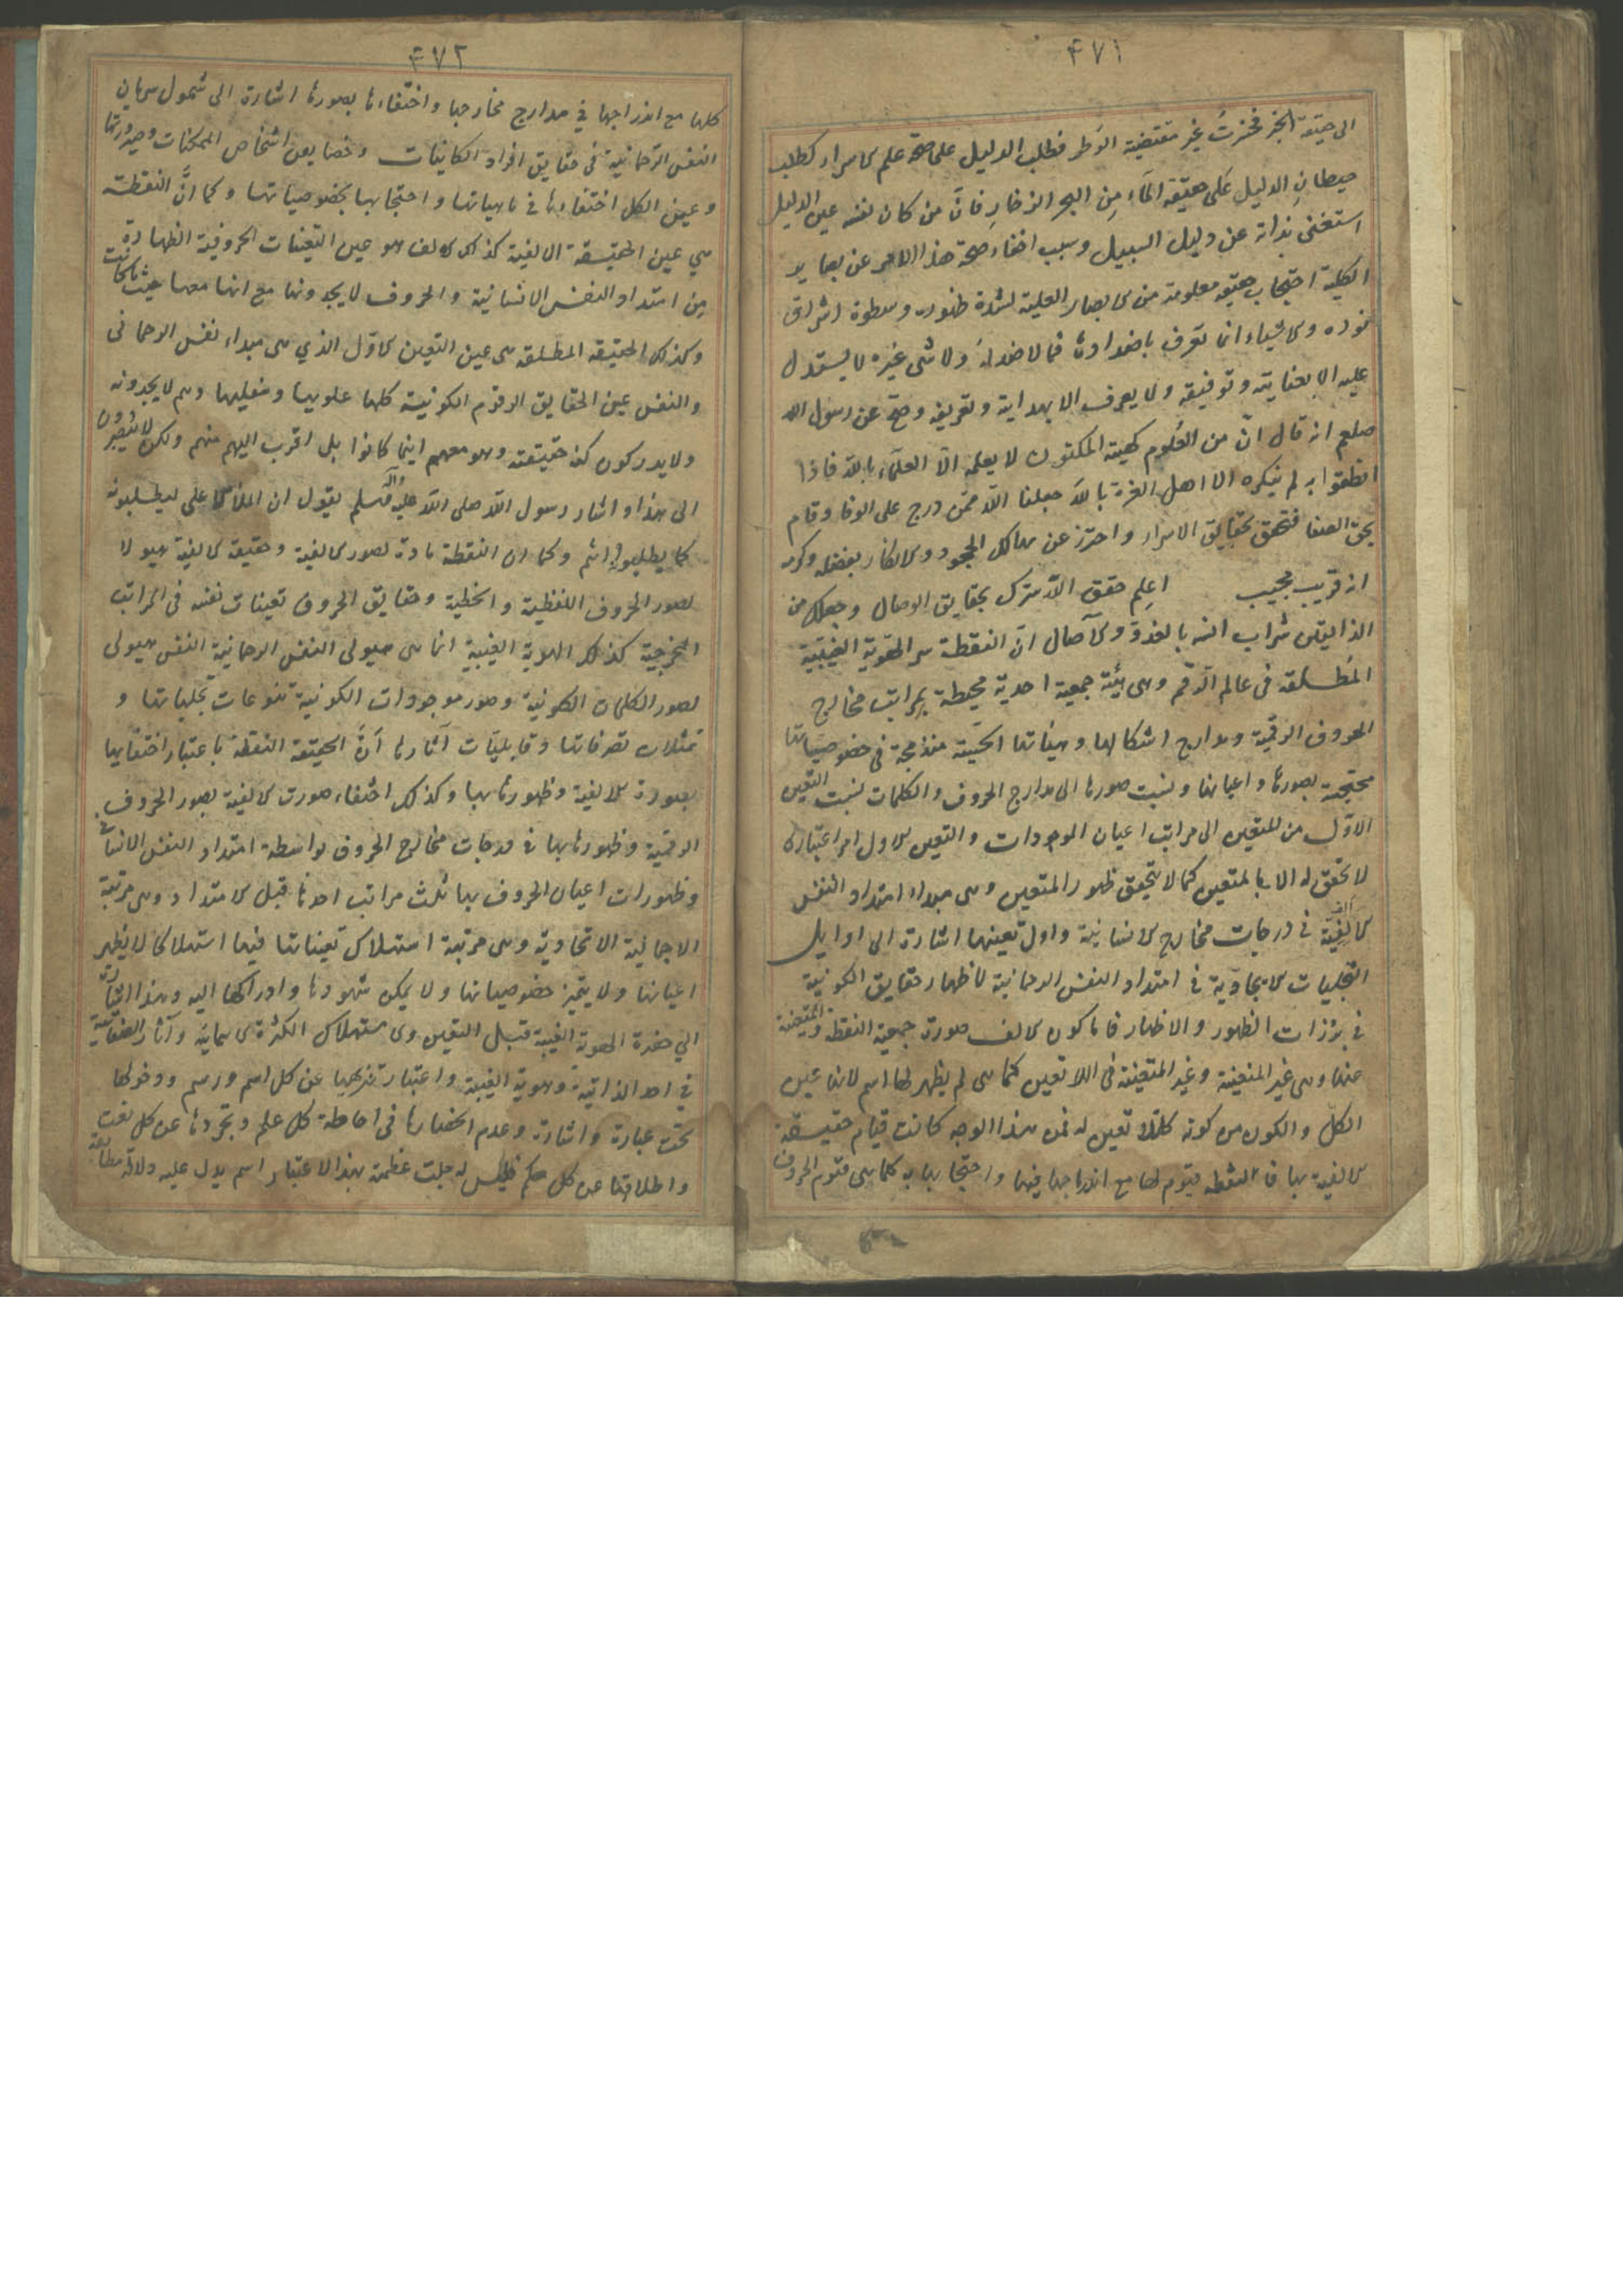 ٤٧١
الى حقيقة الخبر فخبرت غير مقتضية الوطر فطلب الدليل على صحة علم الاسرار كطلب
حيطان الدليل على حقيقة الماء من البحر الزخار فان من كان نفسه عين الدليل
استغنى بذاته عن دليل السبيل وسبب اخفاء صحة هذا الامر عن بصاير
الكلية احتجاب حقيقة معلومة من الابصار العلية لشدة ظهوره وسطوة اشراق
نوره والاشياء انما تعرف باضدادها فما لا ضد له ولا شى غيره لا يستدل
عليه الا بعنايته وتوفيقه ولا يعرف الا بهدايته وتعريفه وصح عن رسول الله
صلعم انه قال ان من العلوم كهيئة المكنون لا يعلمه الا العلماء بالله فاذا
انطقوا به لم ينكره الا اهل الغرة بالله جعلنا الله ممن درج على الوفا وقام
بحق الصفا فتحقق بحقايق الاسرار واحترز عن مهالك الجحود والانكار بفضله وكرمه
انه قريب مجيب اعلم حقق الله سرك بحقايق الوصال وجعلك من
الذائقين شراب انسه بالغدو والآصال ان النقطة سر الهوية الغيبية
المطلقة فى عالم الرقم وهى هيئة جمعية احدية محيطة بمراتب مخارج
الحروف الرقمية ومدارج اشكالها وهيئاتها الحسية مندمجة فى خصوصياتها
محتجبة بصورها واعيانها ونسبت صورها الى مدارج الحروف والكلمات نسبت التعين
الاول من المتعين الى مراتب اعيان الموجودات والتعين الاول امر اعتبارى
لا تحقق له الا بالمتعين كما لا يتحقق ظهور المتعين وهى مبداء امتداد النفس
الالفية فى درجات مخارج الانسانية واول تعينها اشارة الى اوايل
التجليات الايجادية فى امتداد النفس الرحمانية لاظهار حقايق الكونية
فى برزات الظهور والاظهار فاما كون الالف صورة جمعية النقطة والمتعينة
عنها وهى غير المتعينة وغير المتعينة فى اللا تعين كما هى لم يظهر لها اسم لانها عين
الكل والكون من كونه كلا لا تعين له فمن هذا الوجه كانت قيام حقيقة
الالفية بها فالنقطة قيوم لها مع اندراجها فيها واحتجابها به كما هى قيوم الحروف
٤٧٢
كلها مع اندراجها فى مدارج مخارجها واختفاءها بصورها اشارة الى شمول سريان
النفس الرحمانية فى حقايق افراد الكاينات وخصايص اشخاص الممكنات وصيرورتها
وعين الكل اختفاءها فى ماهياتها واحتجابها بخصوصياتها وكما ان النقطة
هى عين الحقيقة الالفية كذلك الالف هو عين التعينات الحروفية الظاهرة
من امتداد النفس الانسانية والحروف لا يجدونها مع انها معها حيثما كانت
وكذلك الحقيقة المطلقة هى عين التعين الاول الذي هى مبداء نفس الرحمانى
والنفس عين الحقايق الرقوم الكونية كلها علويها وسفليها وهم لا يجدونه
ولا يدركون كنه حقيقته وهو معهم اينما كانوا بل اقرب اليهم منهم ولكن لا تبصرون
الى هذا اشار رسول الله صلى الله عليه وآله وسلم بقول ان الملاء الاعلى ليطلبونه
كما يطلبونه انتم وكما ان النقطة مادة لصور الالفية وحقيقة الالفية هيولا
لصور الحروف اللفظية والخطية وحقايق الحروف تعينات نفسه فى المراتب
المخرجية كذلك الهوية الغيبية انما هى هيولى النفس الرحمانية النفس هيولى
لصور الكلمات الكونية وصور موجودات الكونية تنوعات تجلياتها و
تمثلات تصرفاتها وقابليات آثارها ان الحقيقة النقطة باعتبار اختفايها
بصورة الالفية وظهورها بها وكذلك اختفاء صورت الالفية بصور الحروف
الرقمية وظهورها بها فى درجات مخارج الحروف بواسطة امتداد النفس الانسانى
وظهورات اعيان الحروف بها ثلث مراتب احدها قبل الامتداد وهى مرتبة
الاجمالية الاتحادية وهى مرتبة استهلاك تعيناتها فيها استهلاكا لا يظهر
اعيانها ولا يتميز خصوصياتها ولا يمكن شهودها وادراكها اليه وهذا اشارة
الي حضرة الهوية الغيبة قبل التعين وهى مستهلك الكثرة الاسمائية وآثار الصفاتية
فى احد الذاتية وهوية الغيبة واعتبار تنزيهها عن كل اسم ورسم ودخولها
تحت عبارة واشارة وعدم انحصارها فى احاطة كل علم وتجردها عن كل نعت
واطلاقها عن كل حكم فليس له جلت عظمته بهذا الاعتبار اسم يدل عليه دلالة مطابقة